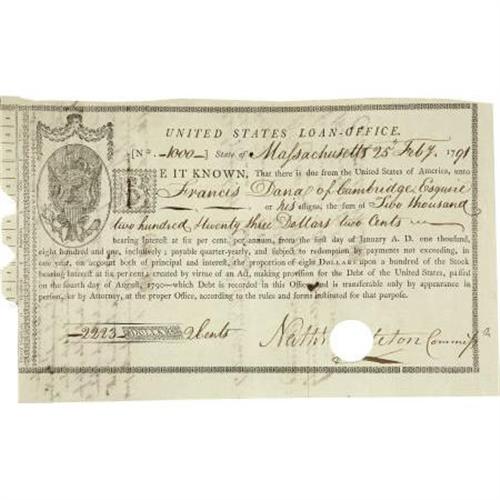 UNITED STATES LOAN-OFFICE.
[No. 1000] State of Massachusetts 25th Feby. 1791
BE IT KNOWN, That there is due from the United States of America, unto
Francis Dana of Cambridge Esquire
or his assigns, the sum of Two thousand
two hundred & twenty three Dollars two Cents
bearing Interest at six per cent. per annum, from the first day of January A. D. one thousand,
eight hundred and one, inclusively; payable quarter-yearly, and subject to redemption by payments not exceeding, in
one year, on account both of principal and interest, the proportion of eight DOLLARS upon a hundred of the Stock
bearing Interest at six per cent; created by virtue of an Act, making provision for the Debt of the United States, passed
on the fourth day of August, 1790—which Debt is recorded in this Office, and is transferable only by appearance in
person, or by Attorney, at the proper Office, according to the rules and forms instituted for that purpose.
2223 DOLLARS 2 Cents
Commissr